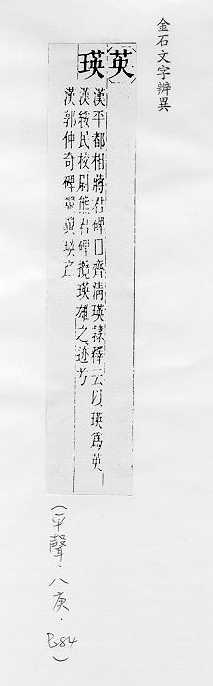 金石文字辨異
英
瑛
漢平都相蔣君碑口齊清瑛隸釋云以瑛爲英
漢綏民校尉熊君碑 瑛雄之迹
漢郭仲奇碑
(平聲.八庚.B84)